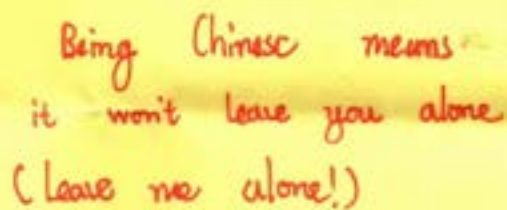 Being Chinese means
it won't leave you alone
(Leave me alone!)